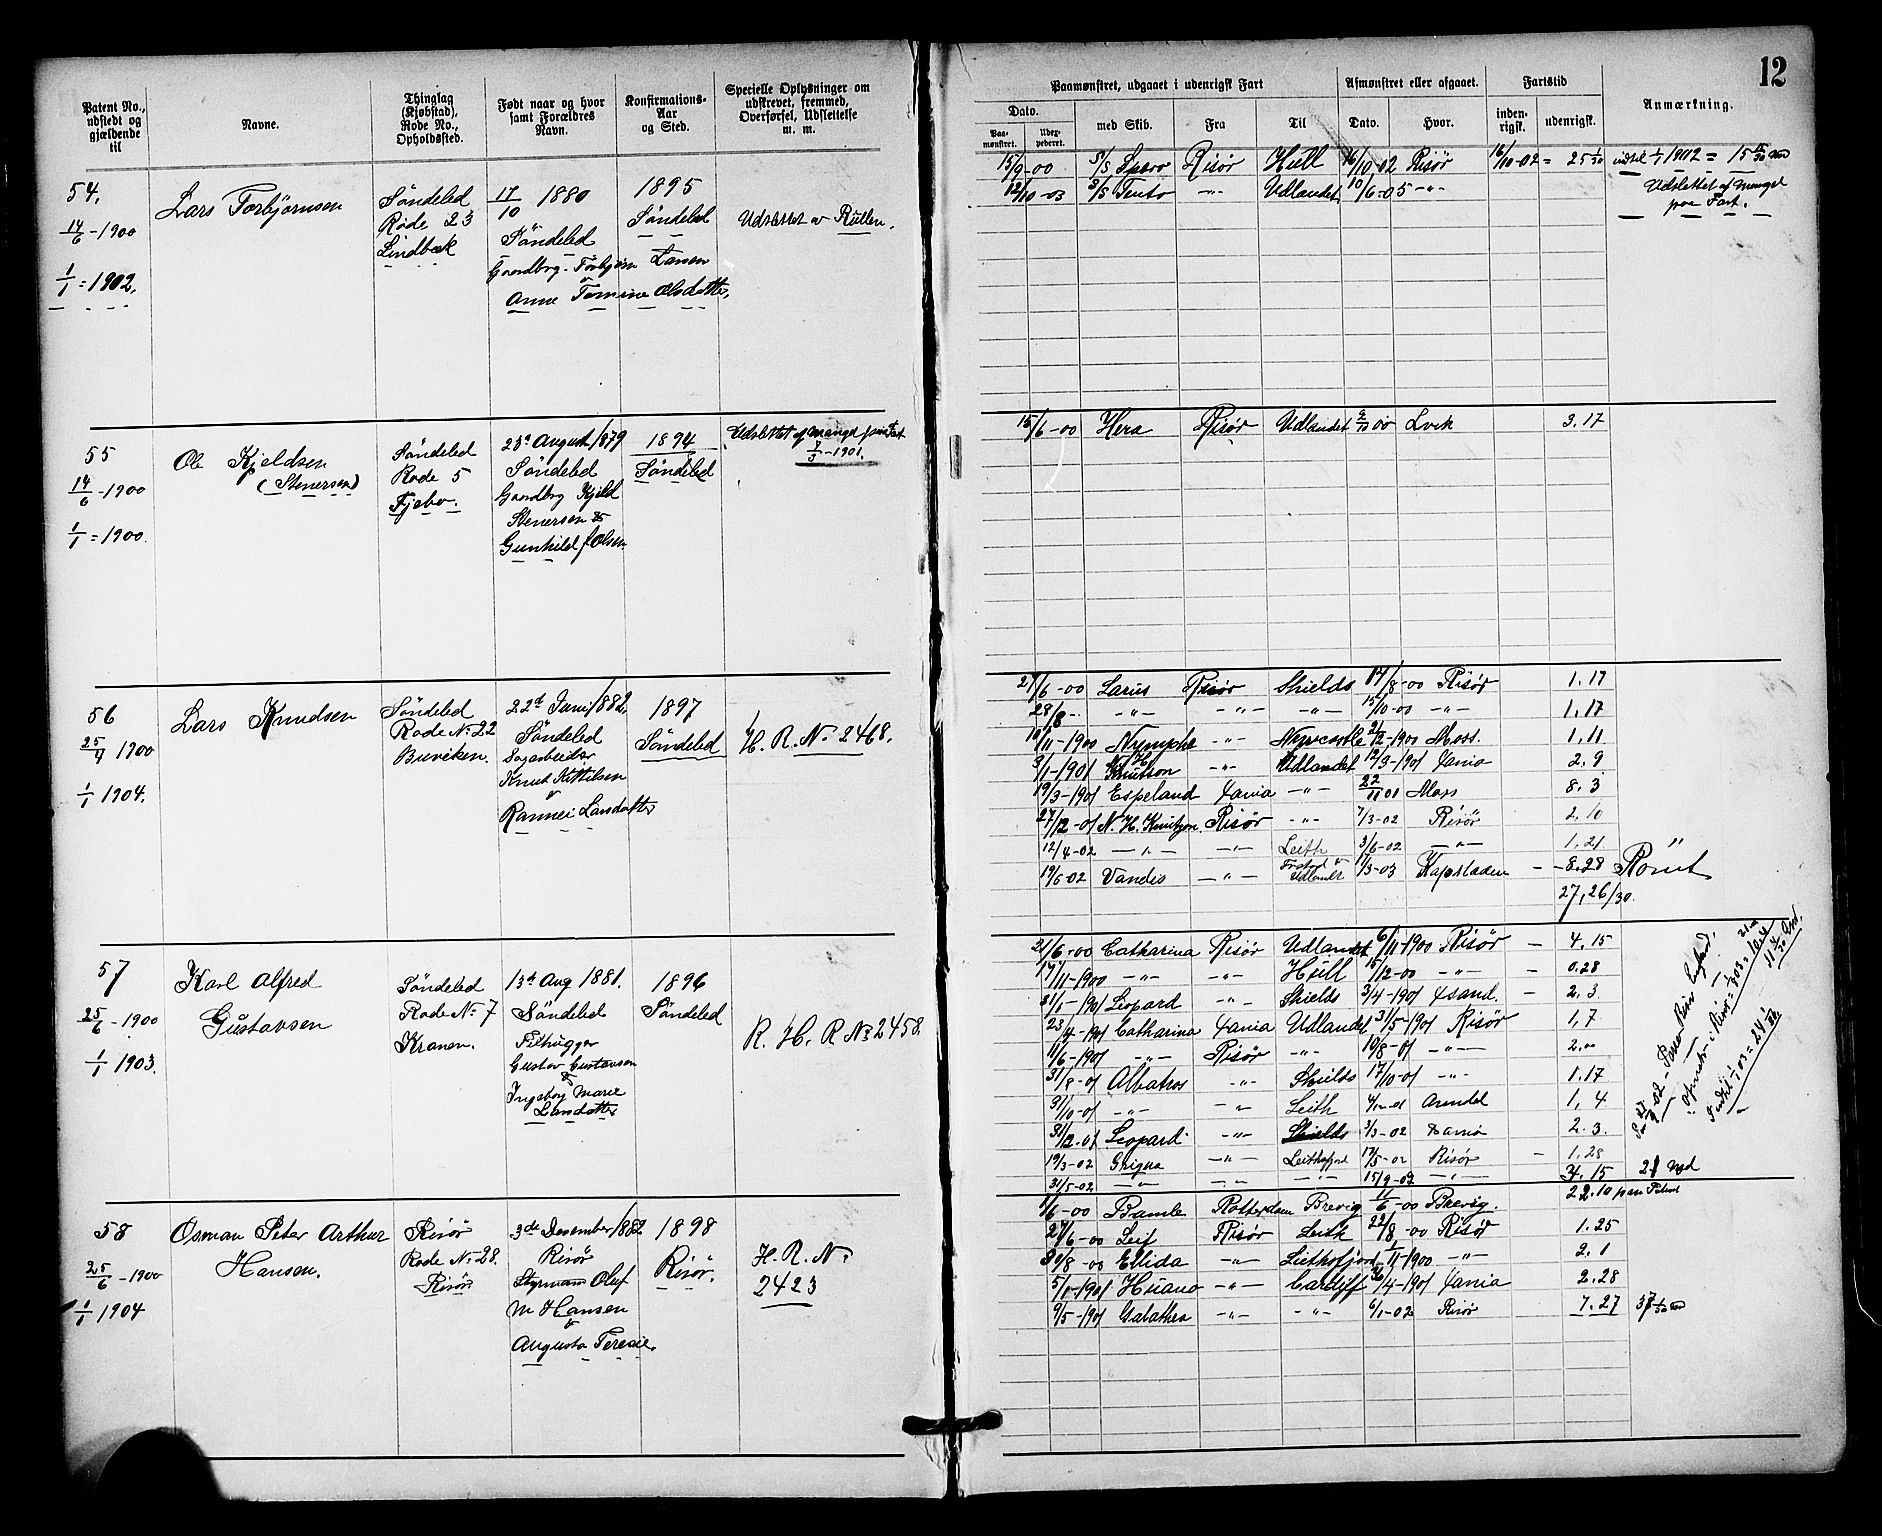 12
Patent No., udstedt og gjældende til
Navne.
Thinglag (Kjøbstad), Rode No., Opholdssted.
Født naar og hvor samt Forældres Navn.
Konfirmations-Aar og Sted.
Specielle Oplysninger om udskrevet, fremmed, Overførsel, Udslettelse m. m.
Paamønstret, udgaaet i udenrigsk Fart
Afmønstret eller afgaaet.
Fartstid
Anmærkning.
Dato.
Paamønstret.
med Skib.
Fra
Til
Dato.
Hvor.
indenrigsk.
udenrigsk.
54.
14/6 - 1900
1/1 = 1902.
Lars Torbjørnsen
Søndeled
Rode 23
Lindbæk
17/10 1880
Søndeled
Gaardbrg. Torbjørn Larsen
Anne Tomine Olsdatter,
1895
Søndeled
Udslettet av Rullen.
15/9-00 S/S Spero Risør Hull 16/10-02 Risør 16/10-02 = 25 indtil 1/1 1902 = 15
12/10-03 S/S Tento -"- Udlandet 10/6-05 -"- Udslettet af mangel
paa Fart.
55
14/6 - 1900
1/1 = 1900.
Ole Kjeldsen
(Stenersen)
Søndeled
Rode 5
Fjebo.
23de August 1879
Søndeled
Gaardbrg Kjeld
Stenersen &
Gunhild J Olsen
1894
Søndeled
Udslettet af mangel paa Fart
- 1901.
15/6-00 Hera Risør Udlandet Lvik 3.17
56
1900
1/1 1904.
Lars Knudsen
Søndeled
Rode No 22
Buviken.
22de Juni 1882.
Søndeled
Sagarbeider
Knut Kittilsen
&
Rannei Larsdatter
1897
Søndeled
H. R. No 2468.
27/6-00 Larus Risør Shields 14/8-00 Risør 1.17
28/8- -"- -"- -"- 15/10-00 -"- 1.17
10/11-1900 Nymphe -"- Newcastle 21/12-1900 Moss. 1.11
3/1-1901 N. H. Knutson -"- Udlandet 12/3-1901 Xania 2.9
19/3-1901 Espeland Xania -"- 22/11 01 Moss 8.3
27/12-01 N. H. Knutzon Risør -"- 7/3-02 Risør 2.10
12/4-02 -"- -"- Leith 3/6-02 -"- 1.21
19/6-02 Vandis -"- Udlandt 11/3-03 Kapstaden - 8.28
27,26/30.
57
25/6 - 1900
1/1 1903.
Karl Alfred
Gustavsen
Søndeled
Rode No 7
Kranen.
13de Aug 1881.
Søndeled
Gustav Gustavsen
&
Ingeborg Marie
Larsdatter
1896
Søndeled
R. H. R No 2458
21/6-00 Catharina Risør Udlandet 6/11-1900 Risør - 4.15
17/11-1900 -"- -"- Hull 15/12-00 -"- - 0.28
31/1-1901 Leopard -"- Shields 3/4-1901 Xsand. - 2.3
23/4-1901 Catharina Xania Udlandet 31/5-1901 Risør 1,7
11/6-1901 -"- Risør -"- 10/8-01 -"- 2.00
31/8-01 Albatros -"- Shields 17/10-01 -"- 1.17
31/10-01 -"- -"- Leith Arendal 1,4
31/12-01 Leopard -"- Shields 3/3-02 Xania 2.3.
19/3-02 Grigua -"- Leithsfjord 17/5-02 Risør - 1.28
31/5-02 -"- -"- -"- 15/9-02 -"- 3.15
58
25/6 - 1900
1/1 1904
Osman Peter Arthur
Hansen.
Risør
Rode No 28.
Risør
3de Desember 1882
Risør
Styrmann Oluf
M Hansen
&
Augusta Teresie.
1898
Risør.
H. R. No
2423
1/6-00 Bamle Rotterdam Brevig 11/6-00 Brevig. 22.10
27/6-00 Leif Risør Leith 22/8-00 Risør 1.25
30/8-00 Ellida -"- Leithsfjord /11-1900 -"- 2.1
5/1-1901 Huano -"- Cardiff /4-1901 Xania 2.28
9/5-1901 Galathea -"- -"- 6/1-02 Risør 7.27